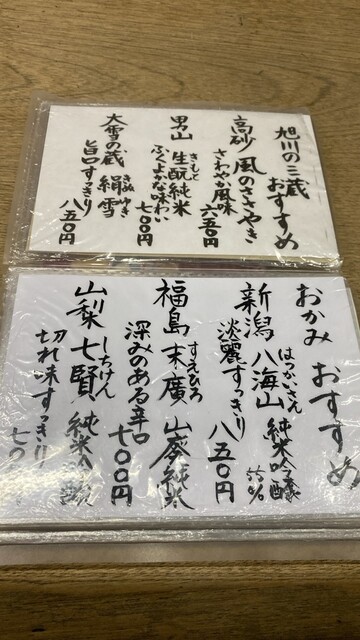 旭川の三蔵
おすすめ
高砂 風のささやき
さわやか風味
六五〇円
男山 生酛純米
きもと
ふくよかな味わい
七〇〇円
大雪の蔵 絹雪
きぬゆき
旨口すっきり
八五〇円
おかみ おすすめ
はっかいさん
新潟 八海山 純米吟醸
淡麗すっきり
八五〇円
すえひろ
福島 末廣 山廃純米
深みのある辛口
七〇〇円
しちけん
山梨 七賢 純米吟醸
切れ味すっきり
七〇